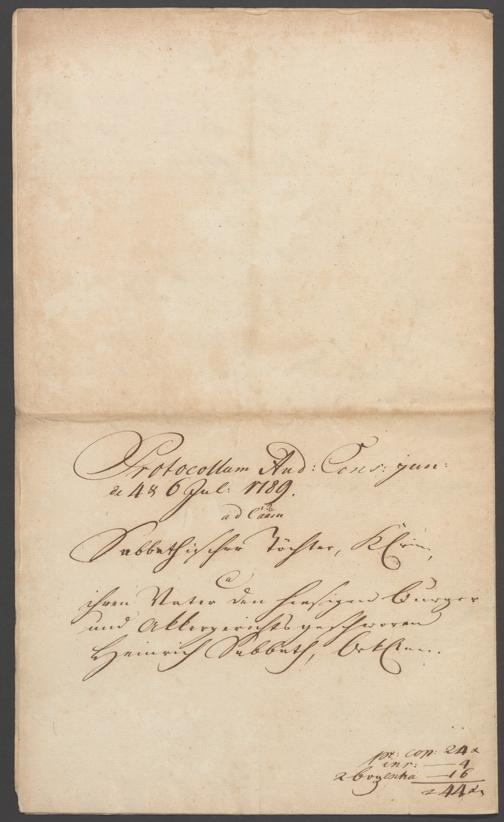 Protocollum Aud: Cons: jun:
de 4 & 6 Jul: 1789.
ad Cãm
Sabbathischer Töchter, Klrin,
c/a
ihren Vater den hiesigen Burger
und Akkergerichts geschworen
Heinrich Sabbath, Beklten.
pr: cop: 24 x
inr: — 4
2 bogen — 16
44 x